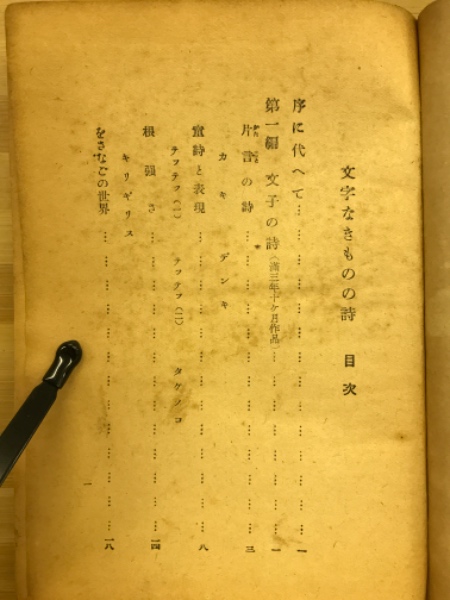 文字なきものの詩　目次
序に代へて……………………………一
第一編　文子の詩（満三年十ヶ月作品）……一
片言の詩……………………………三
カキ　デンキ
童詩と表現……………………………八
テフテフ（一）　テフテフ（二）　タケノコ
根强さ……………………………一四
キリギリス
をさなごの世界……………………………一八
一